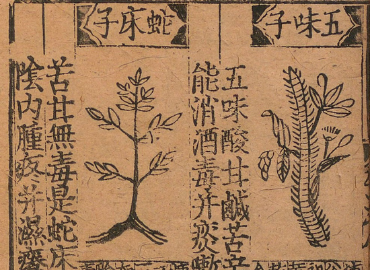 五味子
五味酸甘鹹苦
能消酒毒并痰
蛇床子
苦甘無毒是蛇床
陰内腫疼并濕癢